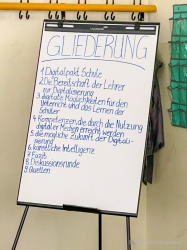 GLIEDERUNG
1 Digitalpakt Schule
2 Die Bereitschaft der Lehrer
zur Digitalisierung
3 digitale Möglichkeiten für den
Unterricht und das Lernen der
Schüler
4 Kompetenzen, die durch die Nutzung
digitaler Medien erreicht werden
5 die mögliche Zukunft der Digitali-
sierung
6 künstliche Intelligenz
7 Fazit
8 Diskussionsrunde
9 Quellen